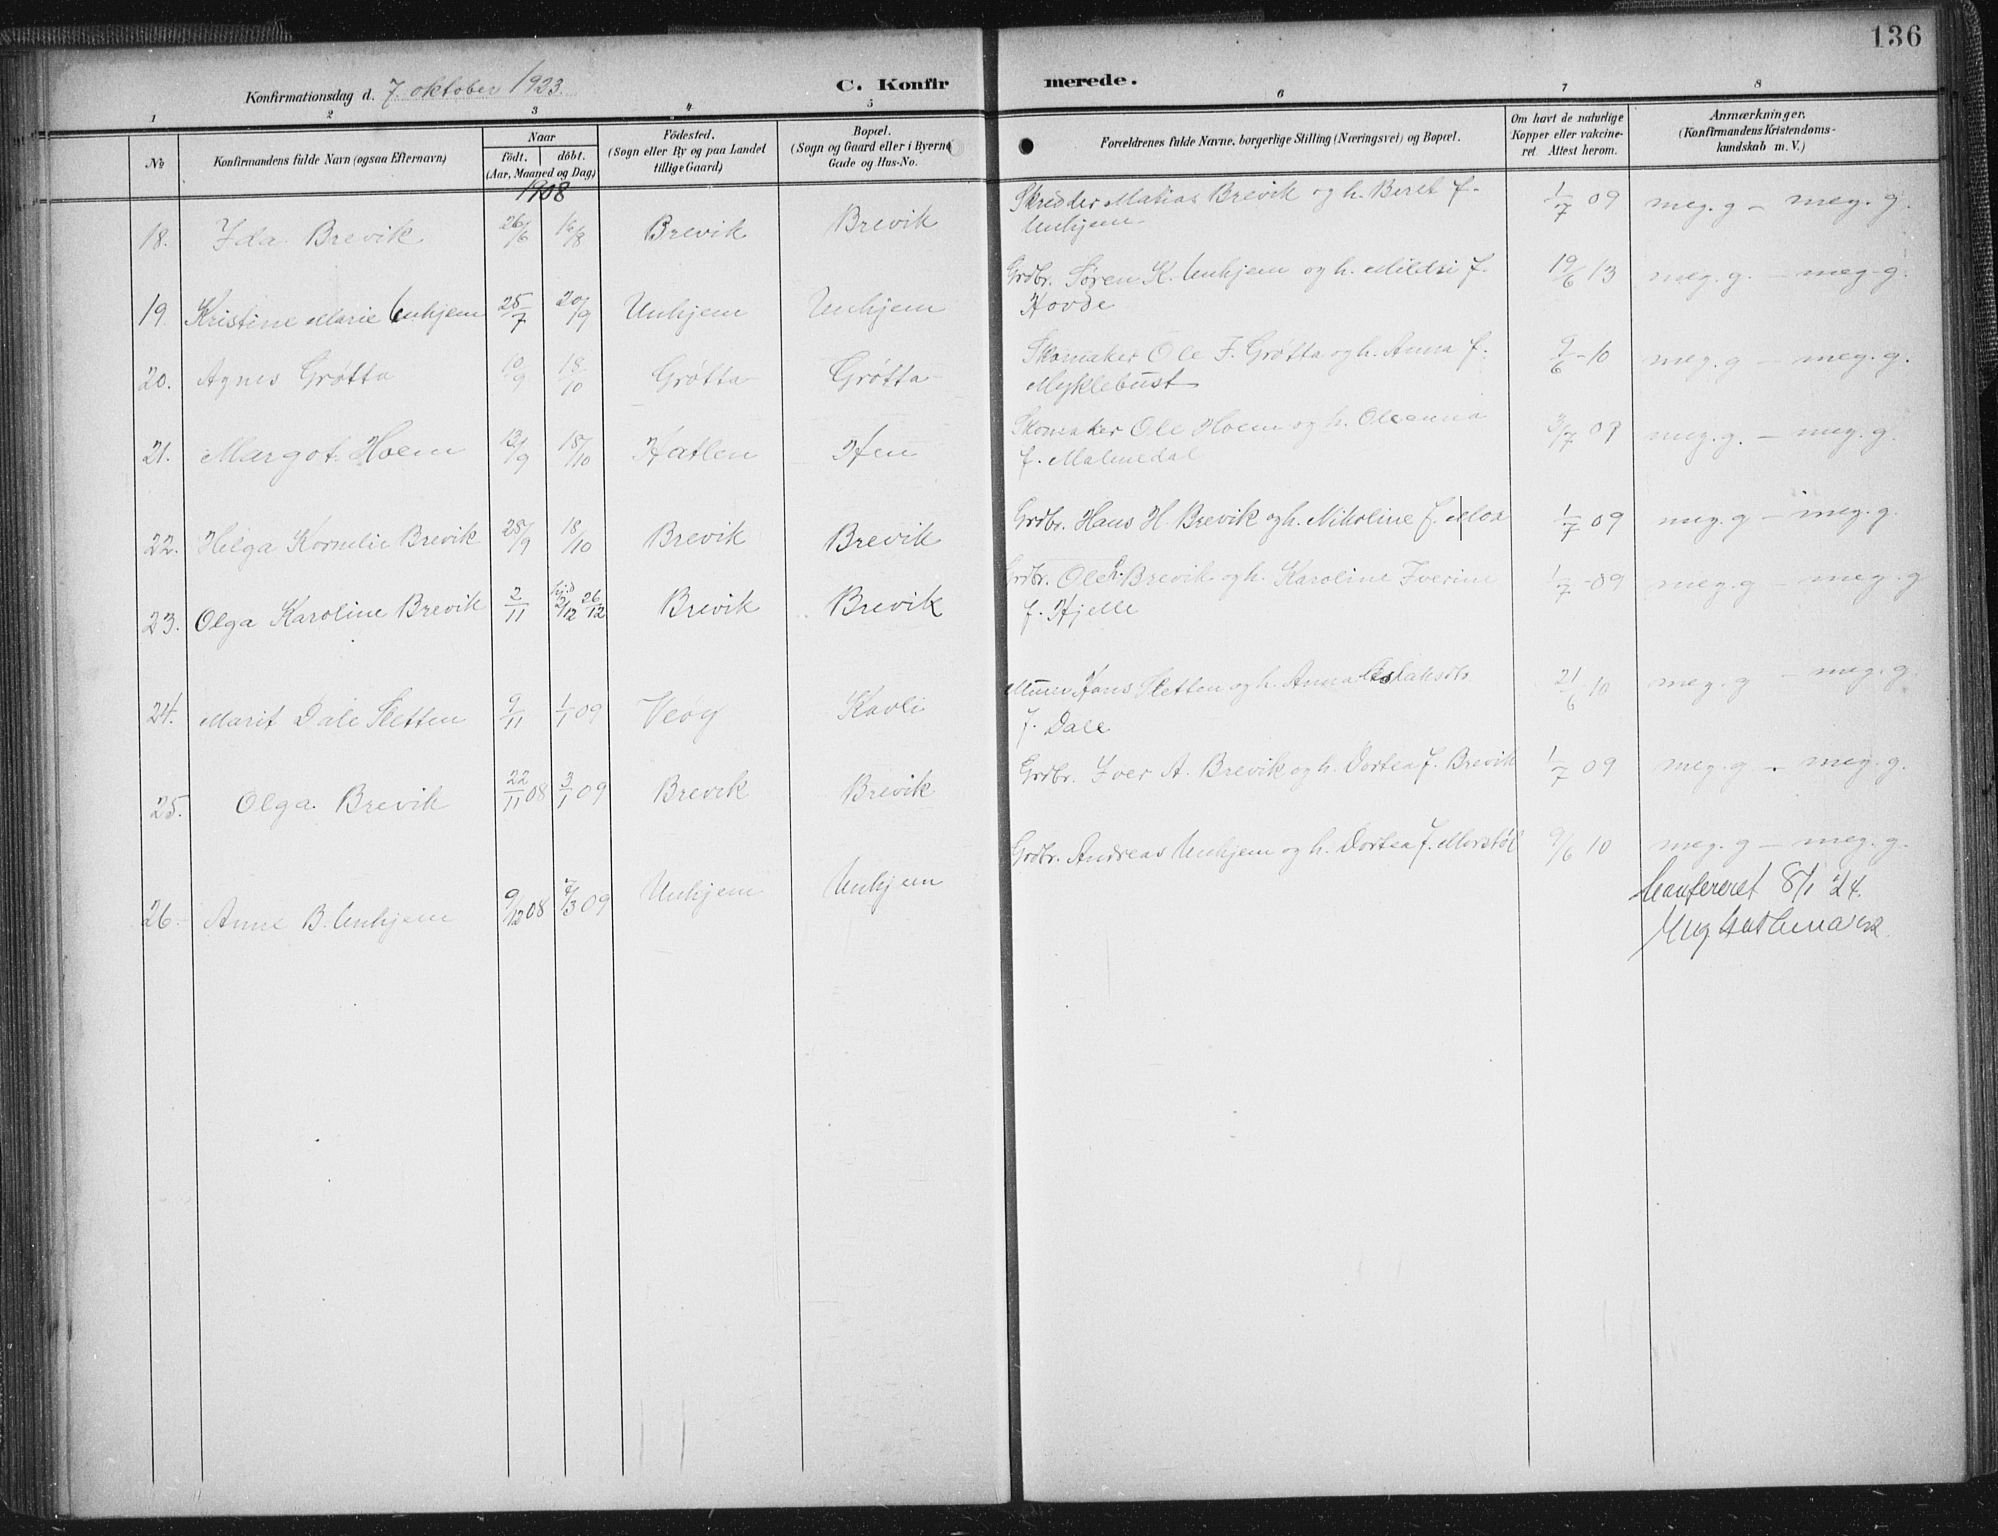 136
Konfirmationsdag d. 7. oktober 1923.
C. Konfirmerede.
1 2 3 4 5 6 7 8
No
Konfirmandens fulde Navn (ogsaa Efternavn).
Naar
født. døbt.
(Aar, Maaned og Dag)
Fødested.
(Sogn eller By og paa Landet
tillige Gaard)
Bopæl.
(Sogn og Gaard eller i Byerne
Gade og Hus-No.
Forældrenes fulde Navne, borgerlige Stilling (Næringsvei) og Bopæl.
Om havt de naturlige
Kopper eller vakcine-
ret. Attest herom.
Anmærkninger.
(Konfirmandens Kristendoms-
kundskab m. V.)
1908
18. Ida Brevik 26/6 16/8 Brevik Brevik Skrædder Matias Brevik og h. Beret f. Unhjem 1/7 09 meg. g – meg. g.
19. Kristine Marie Unhjem 25/7 20/9 Unhjem Unhjem Grdbr. Søren K. Unhjem og h. Mildri f. Hovde 19/6 13 meg. g. – meg. g.
20. Agnes Grøtta 10/9 18/10 Grøtta Grøtta Skomaker Ole F. Grøtta og h. Anna f. Myklebust 9/6 -10 meg. g – meg. g.
21. Margot Hoem 13/9 18/10 Hatlen Hen Skomaker Ole Hoem og h. Oleanna f. Malmedal /7 09 meg. g. – meg. g.
22. Helga Kornelie Brevik 25/9 18/10 Brevik Brevik Grdbr. Hans H. Brevik og h. Nikoline f. Moa 1/7 09 meg. g – meg. g.
23. Olga Karoline Brevik 2/11 hjd 2/12 26/12 Brevik Brevik Grdbr. Ole Brevik og h. Karoline Iverine f. Hjelle 1/7 -09 meg. g – meg. g
24. Marit Dale Sletten 9/11 1/1 09 Veøy Kavli Murer Hans Sletten og h. Anna Aslaksdtr. f. Dale 21/6 10 meg. g – meg. g.
25. Olga Brevik 22/11 08 3/1 09 Brevik Brevik Grdbr. Iver A. Brevik og h. Dortea f. Brevik 1/7 09 meg. g – meg. g.
26. Anne B. Unhjem 9/12 08 7/3 09 Unhjem Unhjem Grdbr. Andreas Unhjem og h. Dortea f. Morstøl 9/6 10 meg. g – meg. g.
Konfereret 8/1 '24.